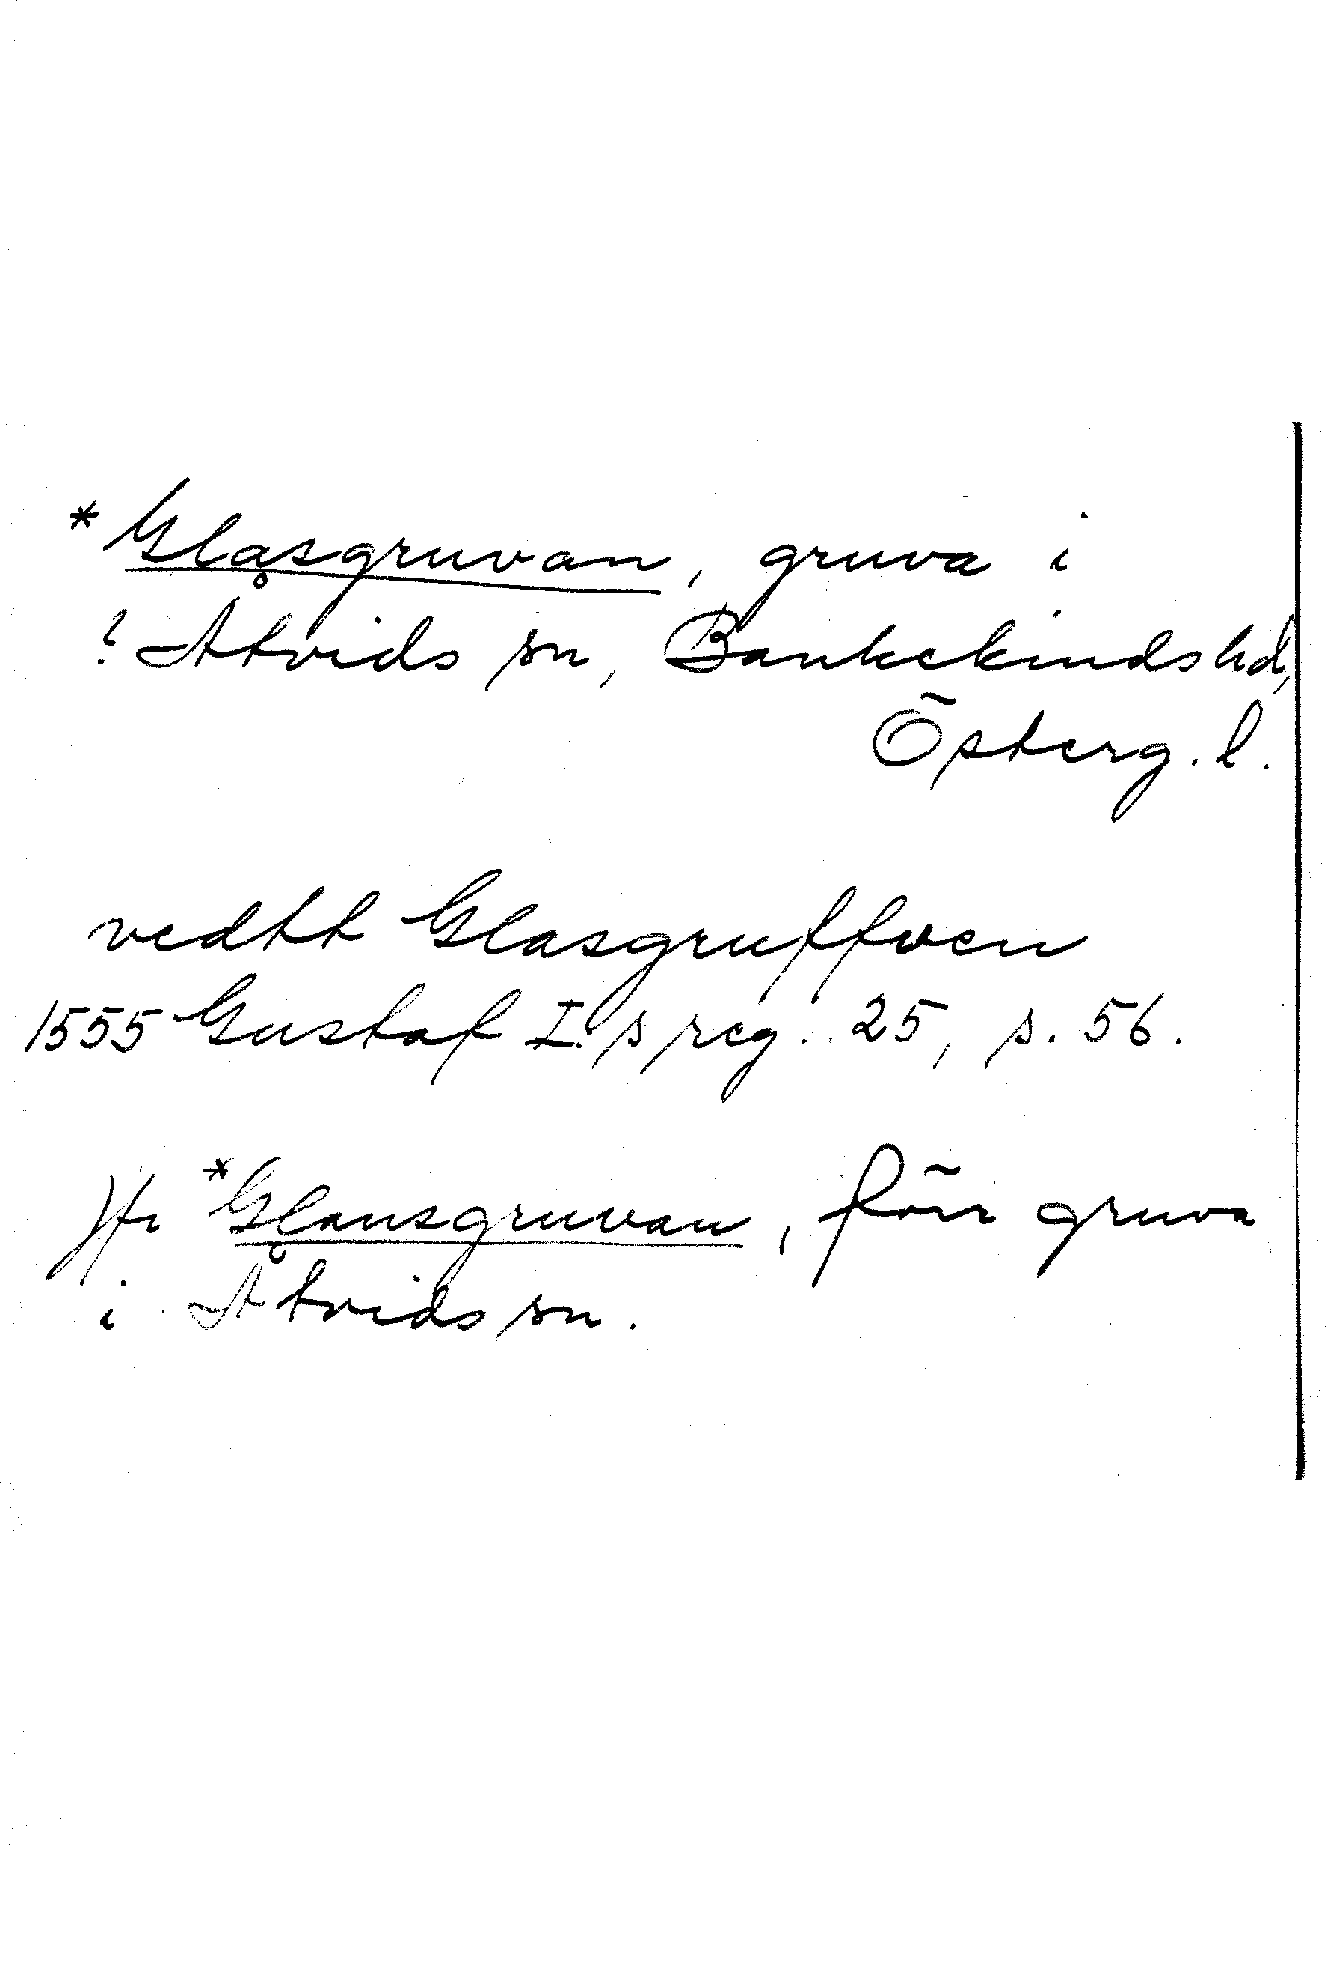 *Glasgruvan, gruva i
? Åtvids sn, Bankekinds hd,
Österg. l.
vedtt Glasgruffven
1555 Gustaf I:s reg. 25, s. 56.
Jfr *Glansgruvan, förr gruva
i Åtvids sn.